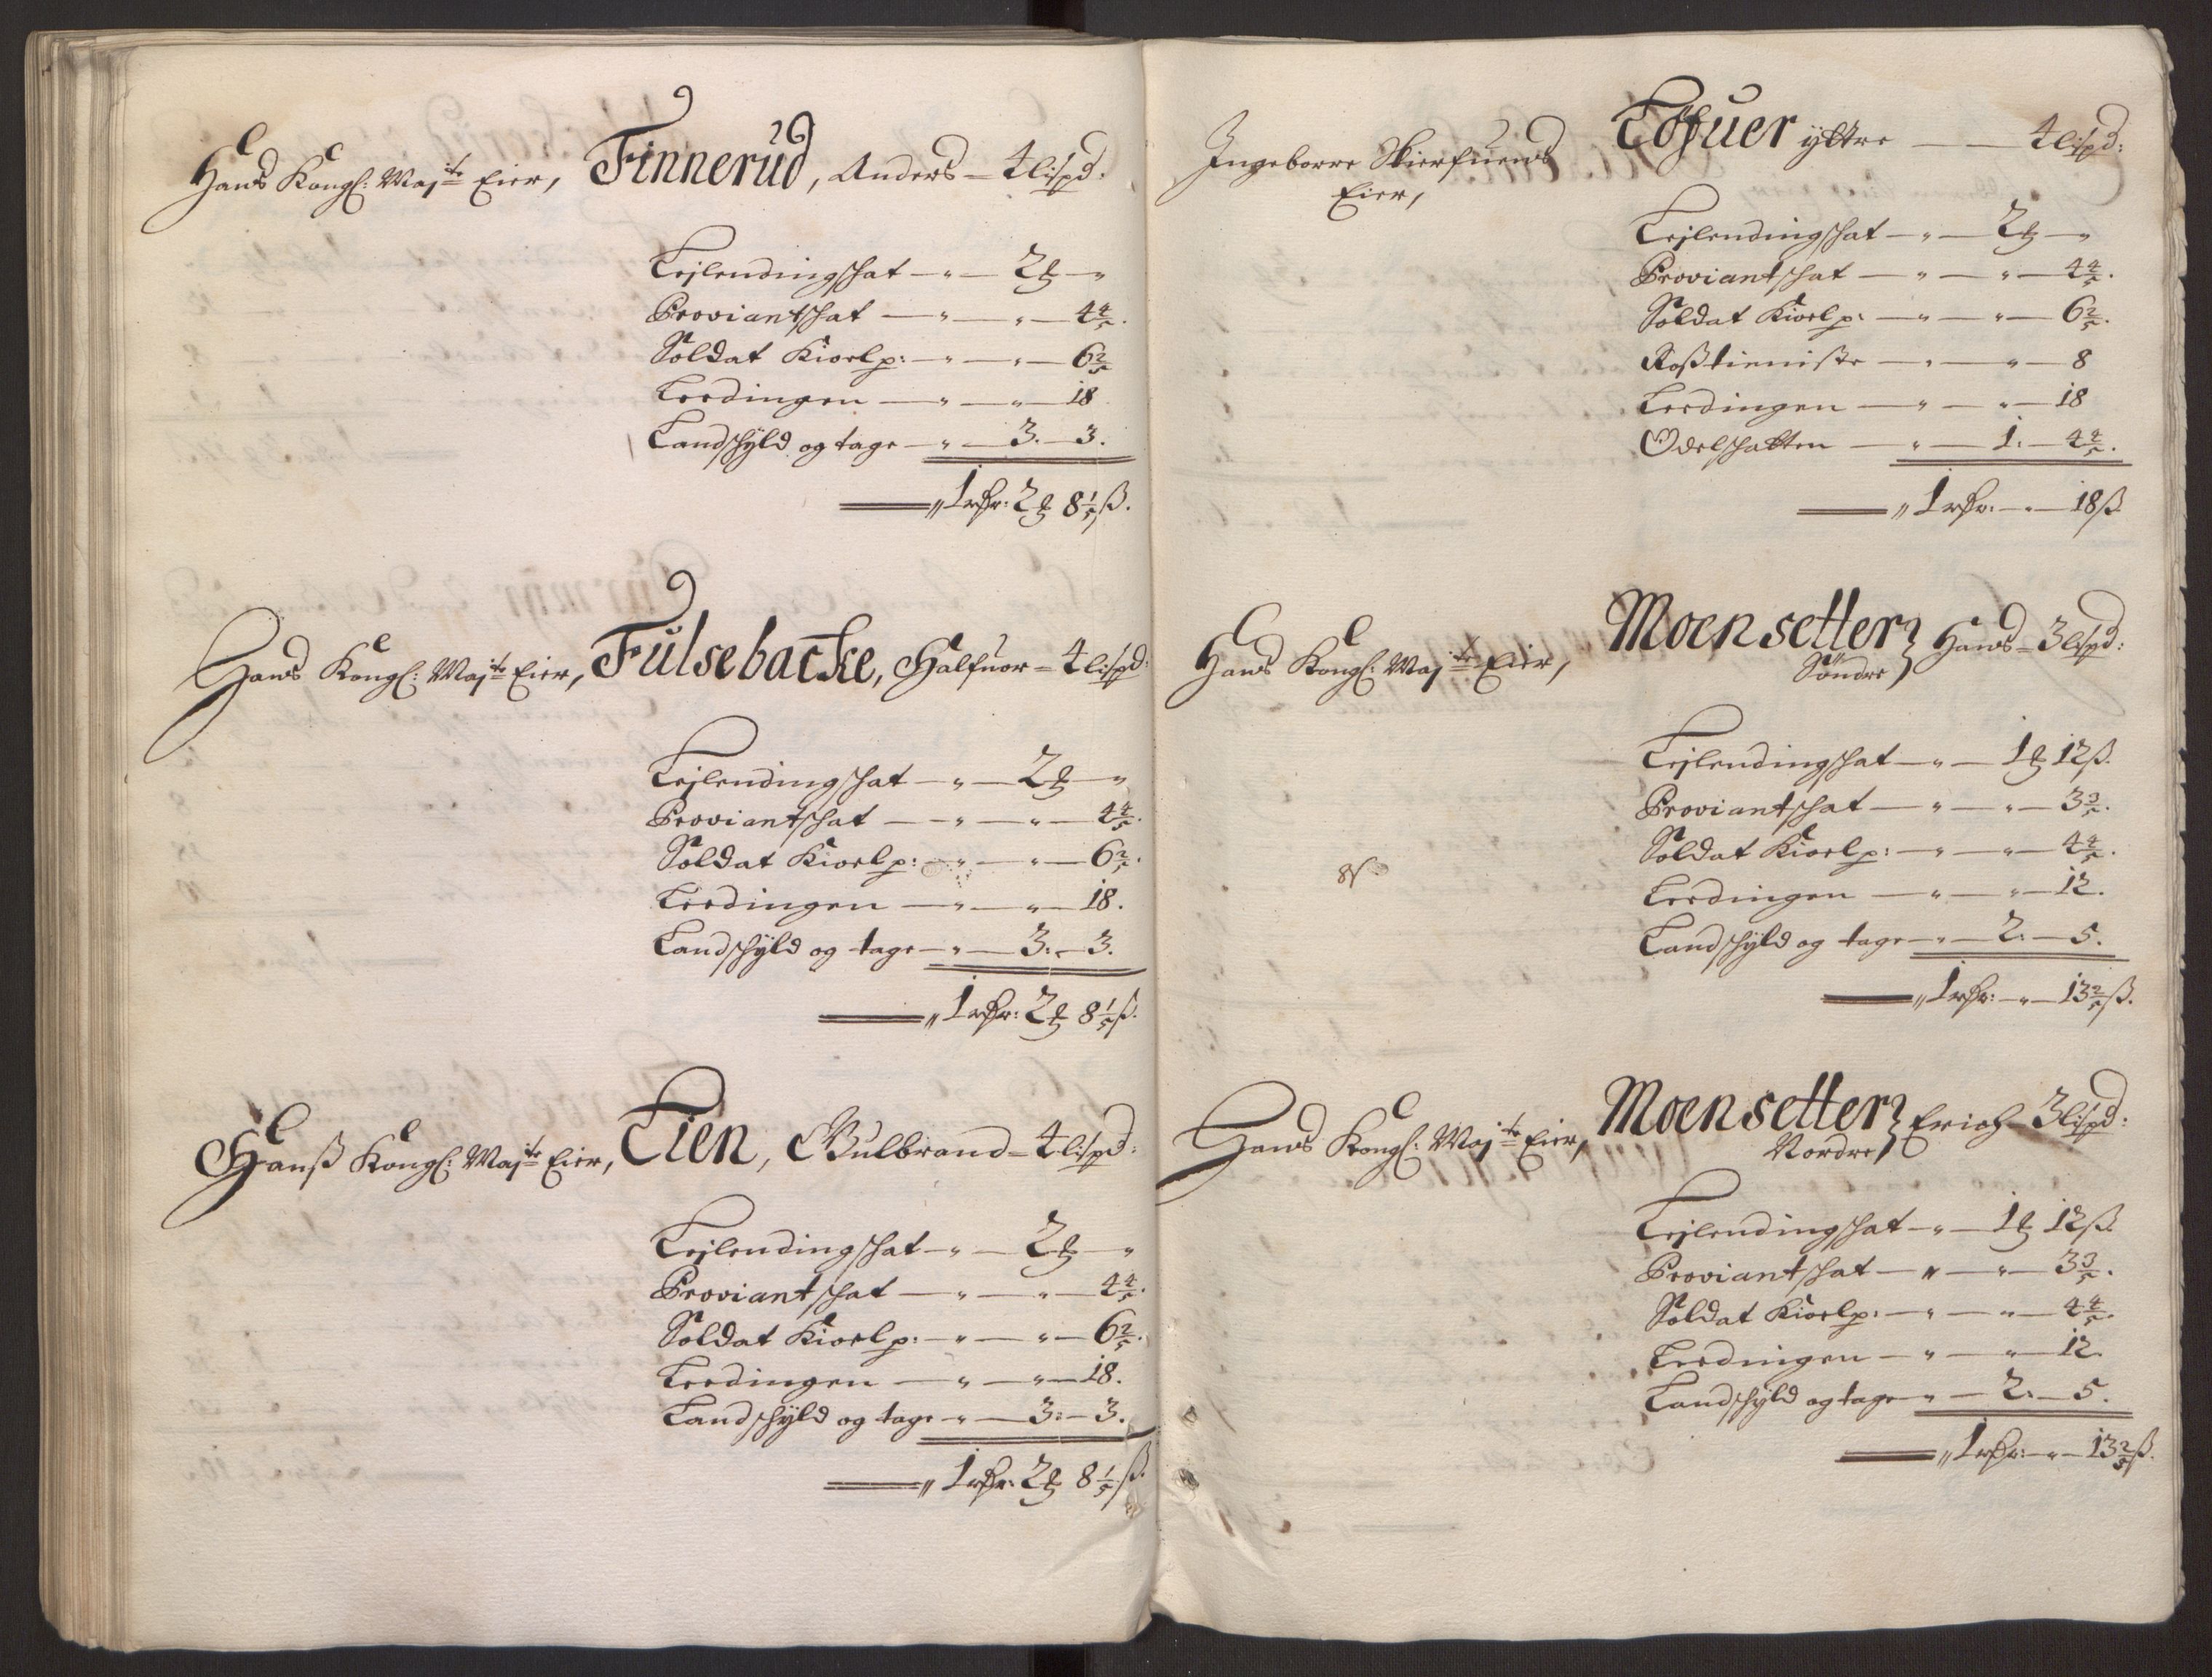 Hans Kongl: Maj:ts Eier, Finnerud, Anders – 4 lispd:
Leilendingschat — „ — 2 ℔ — „
Proviantschat — „ — „ — 4 4/5.
Soldat Kioelp: — „ — „ — 6 2/5
Leedingen — „ — „ — 18
Landschyld og tage — „ — 3. — 3.
„ 1 rdr: 2 ℔ 8 1/5 ß.
Hans Kongl: Maj:ts Eier, Fulsebacke, Halfuor – 4 lispd:
Leilendingschat — „ — 2 ℔ — „
Proviantschat — „ — „ — 4 4/5.
Soldat Kioelp: — „ — „ — 6 2/5.
Leedingen — „ — „ — 18.
Landschyld og tage — „ — 3: — 3.
„ 1 rdr: 2 ℔ 8 1/5 ß.
Hanß Kongl: Maj:ts Eier, Lien, Gulbrand – 4 lispd:
Leilendingschat — „ — 2 ℔ — „
Proviantschat — „ — „ — 4 4/5.
Soldat Kioelp: — „ — „ — 6 2/5.
Leedingen — „ — „ — 18.
Landschyld og tage — „ — 3: — 3.
„ 1 rdr: 2 ℔ 8 1/5 ß.
Ingeborre Skierfuens Eier, yttre — 4 lispd:
Leilendingschat — „ — 2 ℔ — „
Proviantschat — „ — „ — 4 4/5.
Soldat Kioelp: — „ — „ — 6 2/5.
Roßtieniste — „ — „ — 8
Leedingen — „ — „ — 18
Odelschatten — „ — 1: — 4 4/5.
„ 1 rdr: — „ — 18 ß.
Hans Kongl: Maj:ts Eier, Moensetter Hans – 3 lispd:
Söndre
Leilendingschat — „ — 1 ℔ 12 ß.
Proviantschat — „ — „ — 3 3/5.
Soldat Kioelp: — „ — „ — 4 4/5.
Leedingen — „ — „ — 12.
Landschyld og tage — „ — 2: — 5.
„ 1 rdr: — „ — 13 2/5 ß.
Hans Kongl: Maj:ts Eier, Moensetter Erich – 3 lispd:
Nordre
Leilendingschat — „ — 1 ℔ 12 ß.
Proviantschat — „ — „ — 3 3/5.
Soldat Kioelp: — „ — „ — 4 4/5.
Leedingen — „ — „ — 12.
Landschyld og tage — „ — 2: — 5.
„ 1 rdr: — „ — 13 2/5 ß.